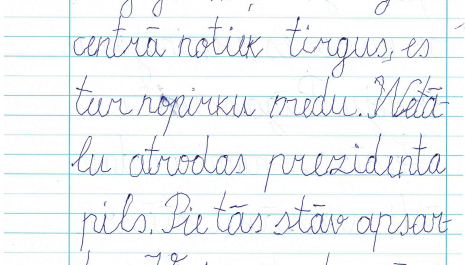 centrā notiek tirgus, es
tur nopirku medu. Netā-
lu atrodas prezidenta
pils. Pie tās stāv apsar-